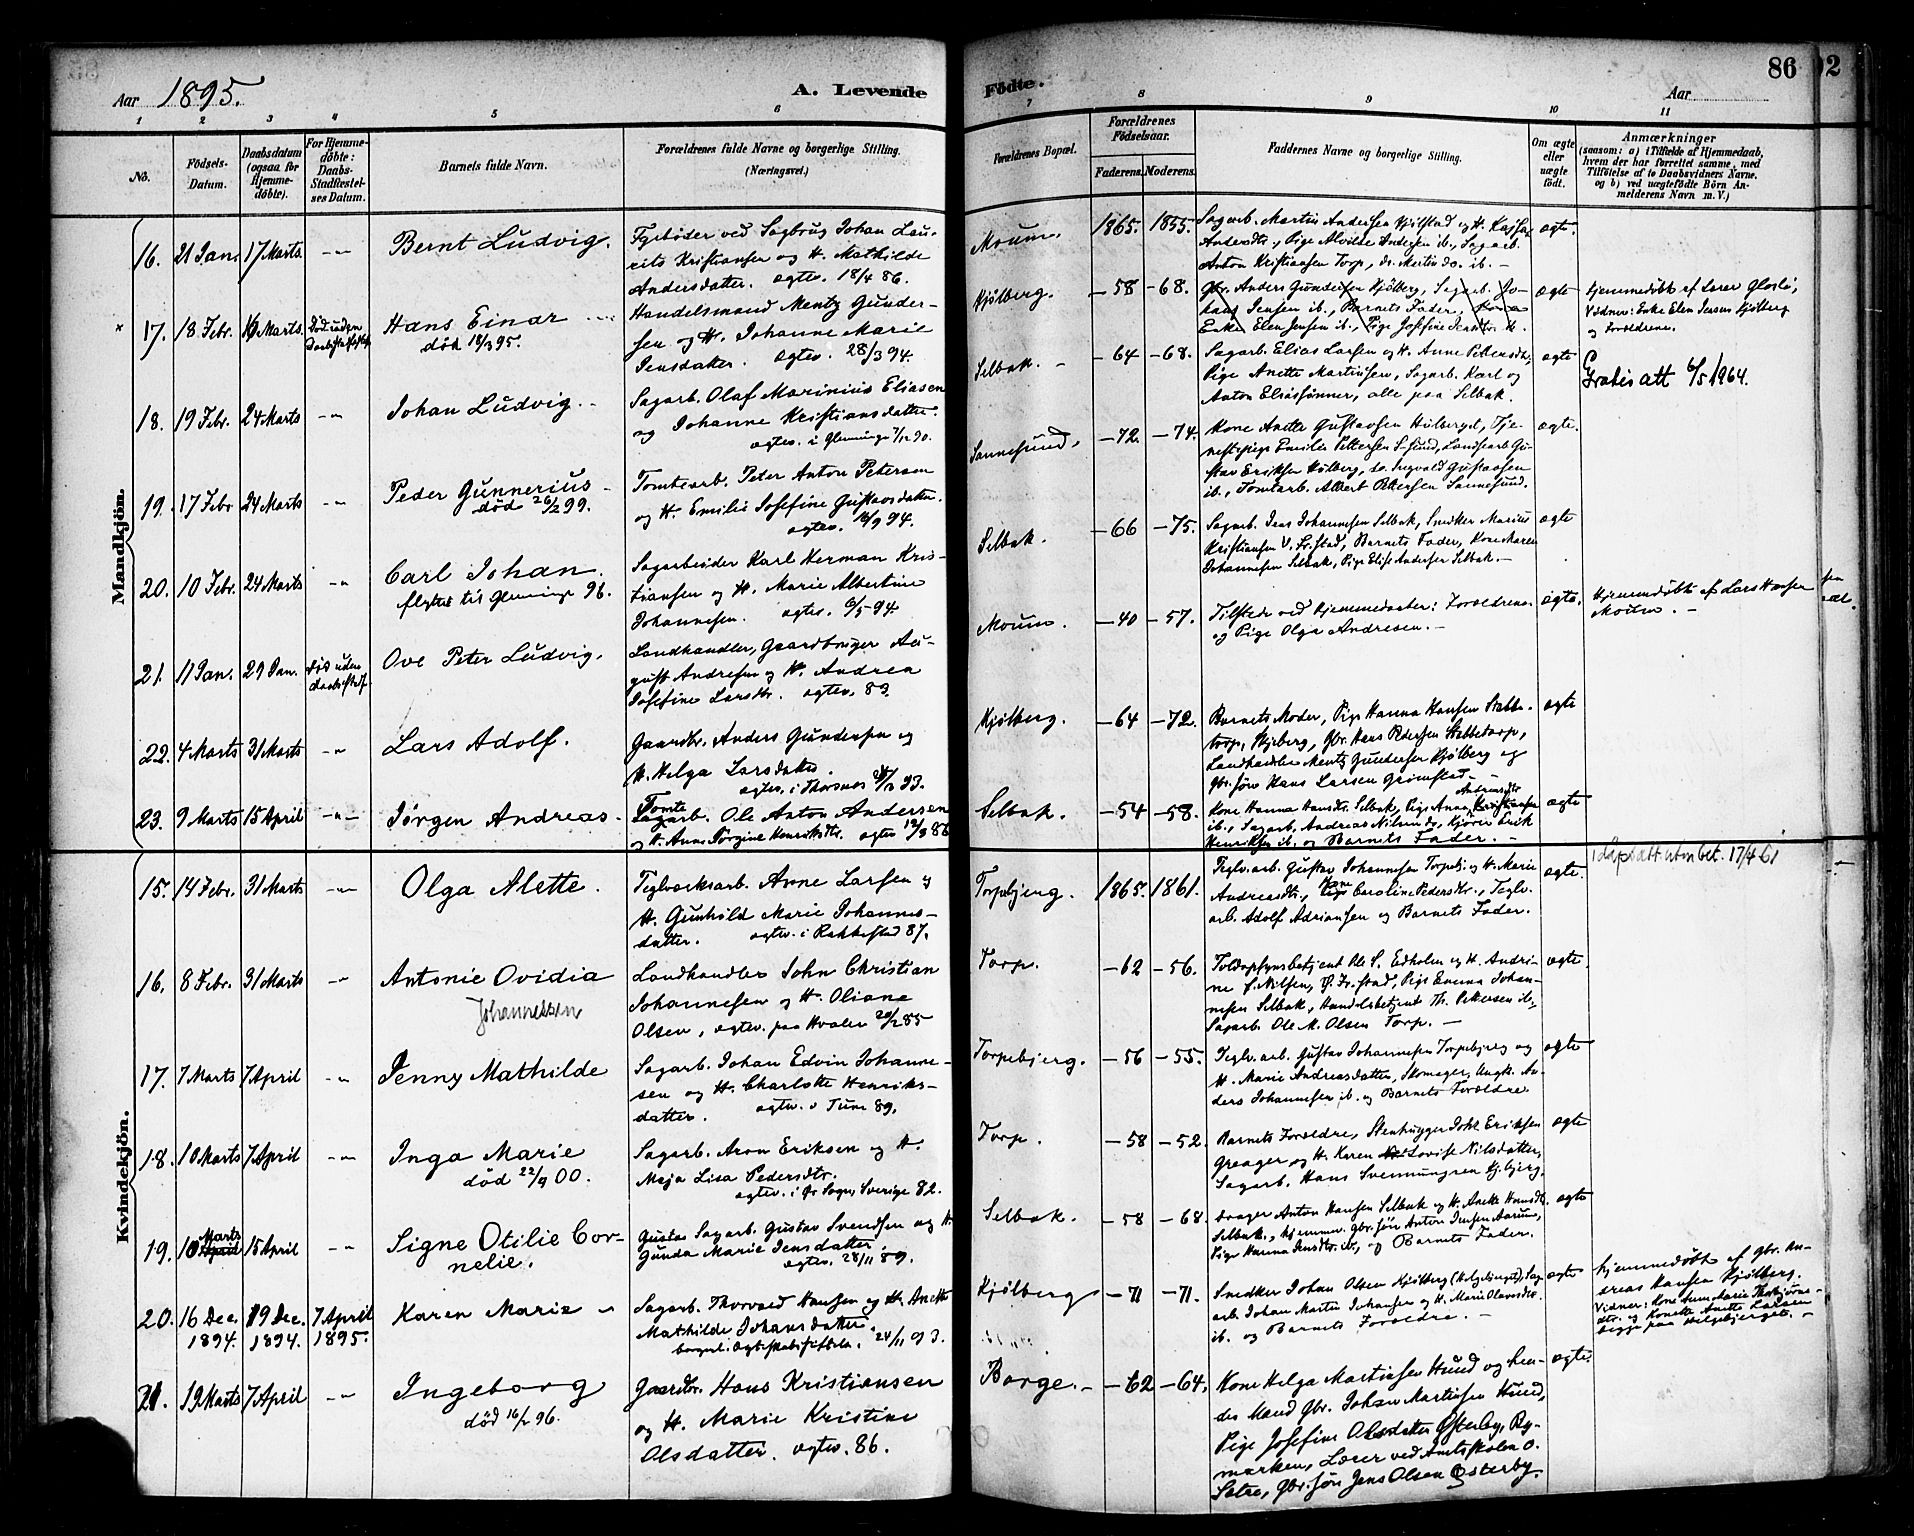 Aar 1895.
A. Levende
Födte.
86
Aar
1 2 3 4 5 6
7 8 9 10 11
No.
Födsels-
Datum.
Daabsdatum
(ogsaa for
Hjemme-
döbte).
For Hjemme-
döbte:
Daabs-
Stadfæstel-
ses Datum.
Barnets fulde Navn.
Forældrenes fulde Navne og borgerlige Stilling.
(Næringsvei.)
Forældrenes Bopæl.
Forældrenes
Födselsaar.
Faderens. Moderens.
Faddernes Navne og borgerlige Stilling.
Om ægte
eller
uægte
födt.
Anmærkninger
(saasom: a) i Tilfælde af Hjemmedaab,
hvem der har forrettet samme, med
Tilföielse af to Daabsvidners Navne.
og b) ved uægtefödte Börn An-
melderens Navn m. V.)
Mandkjön.
16. 21 Jan. 17 Marts. -"- Bernt Ludvig.
Fyrbøder ved Sagbrug Johan Lau-
rits Kristiansen og H. Mathilde
Andersdatter. ægtev. 18/4 86.
Moum. 1865. 1855.
Sagarb. Martin Andersen Kjølstad og H.
Andersdtr., Pige Alvilde Andersen ib., Sagarb.
Anton Kristiansen Torp, do. Martin do. ib. -
ægte.
x 17. 18 Febr. Marts. Død uden
Hans Einar
død 18/3 95.
Handelsmand Mentz Gunder-
sen og H. Johanne Marie
Jensdatter. ægtev. 28/3 94.
Kjølberg. -58 -68.
Gbr. Anders Gundersen Kjølberg, Sagarb. Jo-
hans Jensen ib., Barnets Fader,
Enke Elen Jensen ib., Pige Josefine ib.
ægte
Hjemmedøbt af Lærer
Vidner: Enke Elen Jensen Kjølberg
og Forældrene.
18. 19 Febr. 24 Marts -"- Johan Ludvig.
Sagarb. Olaf Marinius Eliasen
og Johanne Kristiansdatter.
ægtev. i Glemminge 90.
Selbak. -64 -68.
Sagarb. Elias Larsen og H. Anne Pettersdtr,
Pige Anette Martinsen, Sagarb. Karl og
Anton Eliassønner, alle paa Selbak.
ægte
Gratis att 6/5 1964.
19. 17 Febr. 24 Marts -"- Peder Gunnerius
død 26/2 99.
Tomtearb. Peter Anton Petersen
og H. Emilie Josefine Gustavsdatter.
ægtev. 16/9 94.
Sannesund. -72. -74.
Kone Anette Gustavsen Hølberget, Tje-
nestepige Emilie Pettersen S.sund, Landsarb. Gu-
stav Eriksen Hølberg, do. Ingvald Gustavsen
ib., Tomtarb. Albert Pettersen Sannesund.
ægte.
20. 10 Febr. 24 Marts -"- Carl Johan.
flyttet til Glemminge 96.
Sagarbeider Karl Herman Kris-
tiansen og H. Marie Albertine
Johannesen. ægtev. 6/5 94.
Selbak. -66 -75.
Sagarb. Jens Johannesen Selbak, Snedker Marius
Kristiansen V. Fr.stad, Barnets Fader, Kone Maren
Johannesen Selbak, Pige Elise Andersen Selbak. -
ægte
21. 11 Jan. 29 Jan. Død uden
Ove Peter Ludvig.
Landhandler, Gaardbruger Au-
gust Andresen og H. Andrea
Josefine Larsdtr. ægtev. 83.
Moum. -40 -57.
Tilstede ved Hjemmedaaben: Forældrene
og Pige Olga Andresen. -
ægte.
Hjemmedøbt af Lars Hansen
Moum. -
22. 4 Marts 31 Marts -"- Lars Adolf.
Gaardbr. Anders Gundersen og
H. Helga Larsdatter.
ægtev. i Thorsnes 93.
Kjølberg. -64 -72.
Barnets Moder, Pige Hanna Hansen Stabbe-
torp, Skjeberg, Gbr. Hans Pedersen Stabbetorp,
Landhandler Mentz Gundersen Kjølberg og
Gbr. søn Hans Larsen Grimstad. -
ægte
23. 9 Marts 15 April -"- Jørgen Andreas.
Tomte
Sagarb. Ole Anton Andersen
og H. Anne Jørgine Henriksdtr. ægtev 88
Selbak. -54 -58.
Kone Hanna Hansdtr. Selbak, Pige Anna
ib., Sagarb. Andreas Nilsen do, Kjører Erik
Henriksen ib. og Barnets Fader. -
ægte
Kvindekjön.
15. 14 Febr. 31 Marts -"- Olga Alette.
Teglværksarb. Arne Larsen og
H. Gunhild Marie Johannes-
datter. ægtev. i Rakkestad 87.
Torpebjerg. 1865. 1861.
Teglv. arb. Gustav Johannesen Torpebj. og H. Marie
Andreasdtr., Kone Caroline Pedersdtr., Teglv.
arb. Adolf Adriansen og Barnets Fader.
ægte.
dåpsatt utm bet. 17/4 61
16. 8 Febr. 31 Marts -"- Antonie Ovidia
Johannessen
Landhandler John Christian
Johannesen og H. Oliane
Olsen, ægtev. paa Hvaler 20/2 85
Torp. -62 -56.
Toldopsynsbetjent Ole S. Edholm og H. Andri-
ne S. Nilsen, Ø. Fr.stad, Pige Emma Johan-
nesen Selbak, Handelsbetjent Th. Pettersen ib.,
Sagarb. Ole M. Olsen Torp. -
ægte.
17. 7 Marts 7 April -"- Jenny Mathilde
Sagarb. Johan Edvin Johanne-
sen og H. Charlotte Henriks-
datter. ægtev. i Tune 89.
Torpebjerg. -56 -55.
Teglv. arb. Gustav Johannesen Torpebjerg og
H. Marie Andreasdatter, Skomager, Ungk. An-
ders Johannesen ib. og Barnets Forældre
ægte
18. 10 Marts 7 April -"- Inga Marie
død 22/9 00.
Sagarb. Aron Eriksen og H.
Maja Lisa Pedersdtr.
ægtev. i Ør Sogn, Sverige 82.
Torp. -58 -52.
Barnets Forældre, Stenhugger Johs Eriksen
Greager og H. Karen Lovise Nilsdatter,
Sagarb. Hans Svenningsen Kjbjerg.
ægte
19. 10 Marts 15 April -"- Signe Otilie Cor-
nelie.
Gustav Sagarb. Gustav Svendsen og H.
Gunda Marie Jensdatter.
ægtev. 28/11 89.
Selbak. -58 -68.
Drager Anton Hansen Selbak og H. Anette Hansdtr.
Selbak., Hjemmev. Gbr. søn Anton Jensen Aarum,
Pige Hanna Jensdtr. ib., og Barnets Fader.
ægte
20. 16 Dec. 19 Dec. 7 April
1894. 1894. 1895.
Karen Marie
Sagarb. Thorvald Hansen og H. Anette
Mathilde Johansdatter.
borgerl. Ægteskabsstiftelse. 24/11 93.
Kjølberg -71 -71.
Snedker Johan Olsen Kjølberg (Helgebjerget), Sag
arb. Johan Martin Johansen og H. Marie Olavsdtr.
ib. og Barnets Forældre. -
ægte
Hjemmedøbt af Gbr. An-
dreas Hansen Kjølberg.
Vidner: Kone Anne Marie Thorbjørns-
dtr. og Konette Anette Larsen
begge paa Helgebjerget. -
21. 19 Marts 7 April -"- Ingeborg
død 16/2 96.
Gaardbr. Hans Kristiansen
og H. Marie Kristine
Olsdatter. ægtev. 86.
Borge. - -62 -64.
Kone Helga Martinsen Hund og hen-
des Mand Gbr. Johan Martinsen Hund,
Pige Josefine Olsdatter Østerby, Ry-
marken, Lærer ved Amtsskolen O.
Sætre, Gbr. søn Jens Olsen Østerby.
ægte.